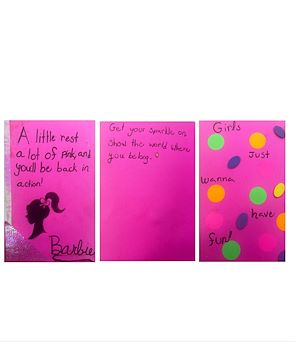 A little rest
a lot of pink, and
you'll be back in
action!
Barbie
Get your sparkle on,
show the world where
you belong.
Girls
Just
wanna
have
fun!